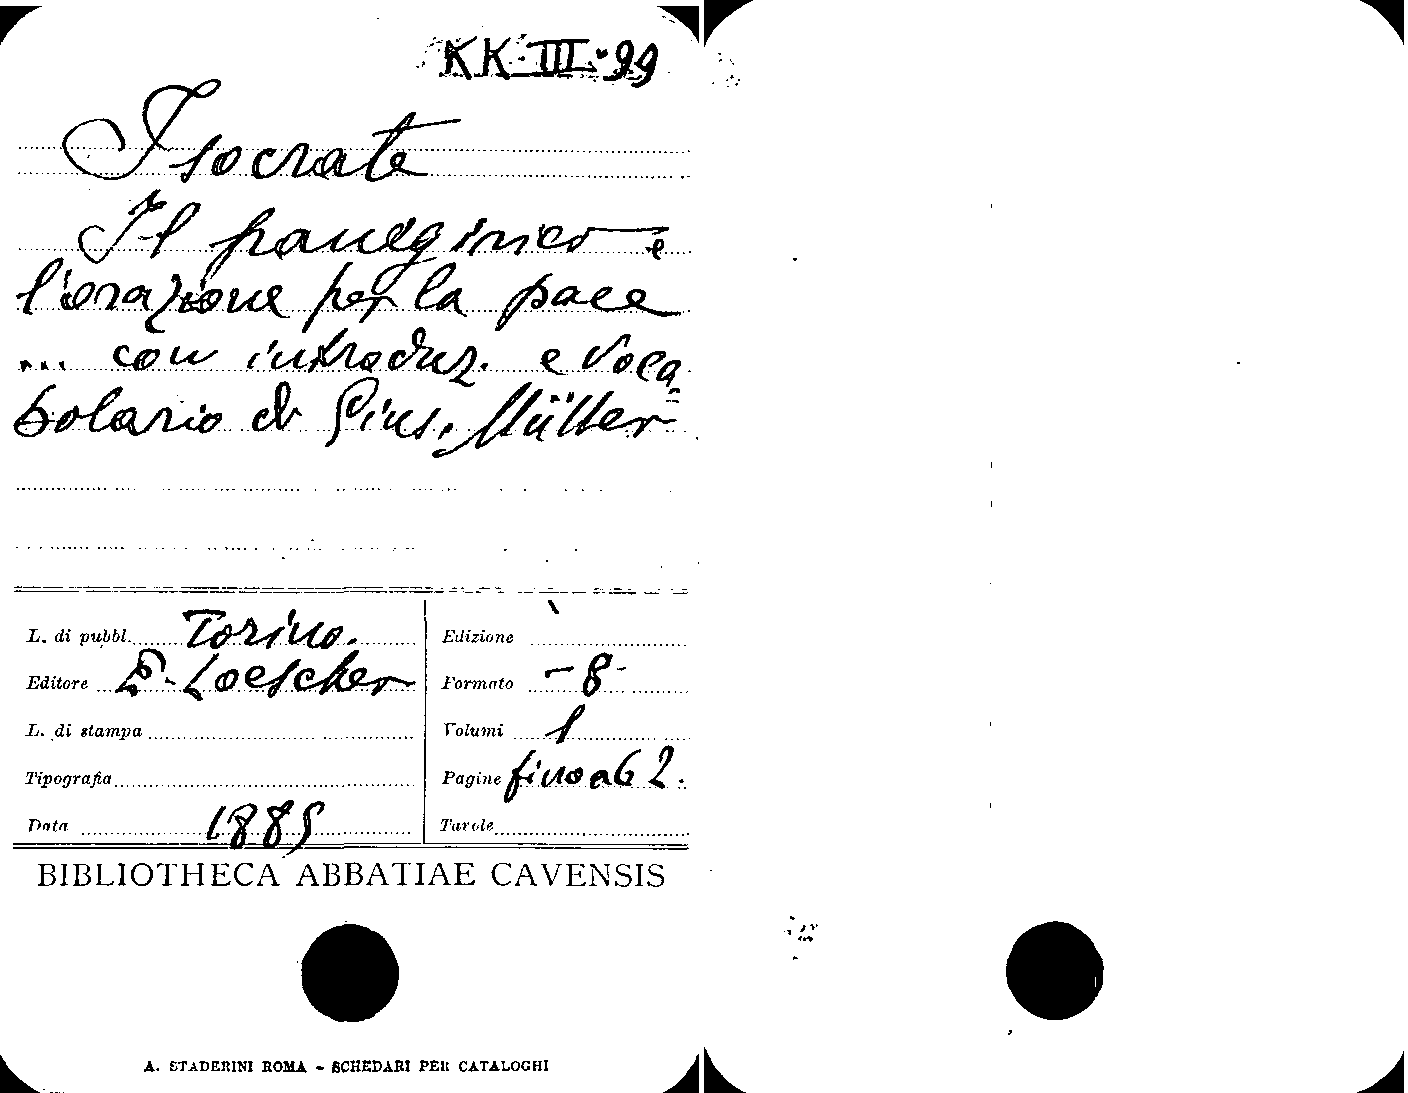 KK. III. 99
Isocrate
Il panegirico e
l'orazione per la pace
... con introduz. e voca
bolario di Gius. Müller
L. di pubbl. Torino.
Editore E. Loescher
L. di stampa
Tipografia
Data 1885
Edizione
Formato - 8 -
Volumi 1
Pagine fino a 62.
Tavole
BIBLIOTHECA ABBATIAE CAVENSIS
A. STADERINI ROMA - SCHEDARI PER CATALOGHI